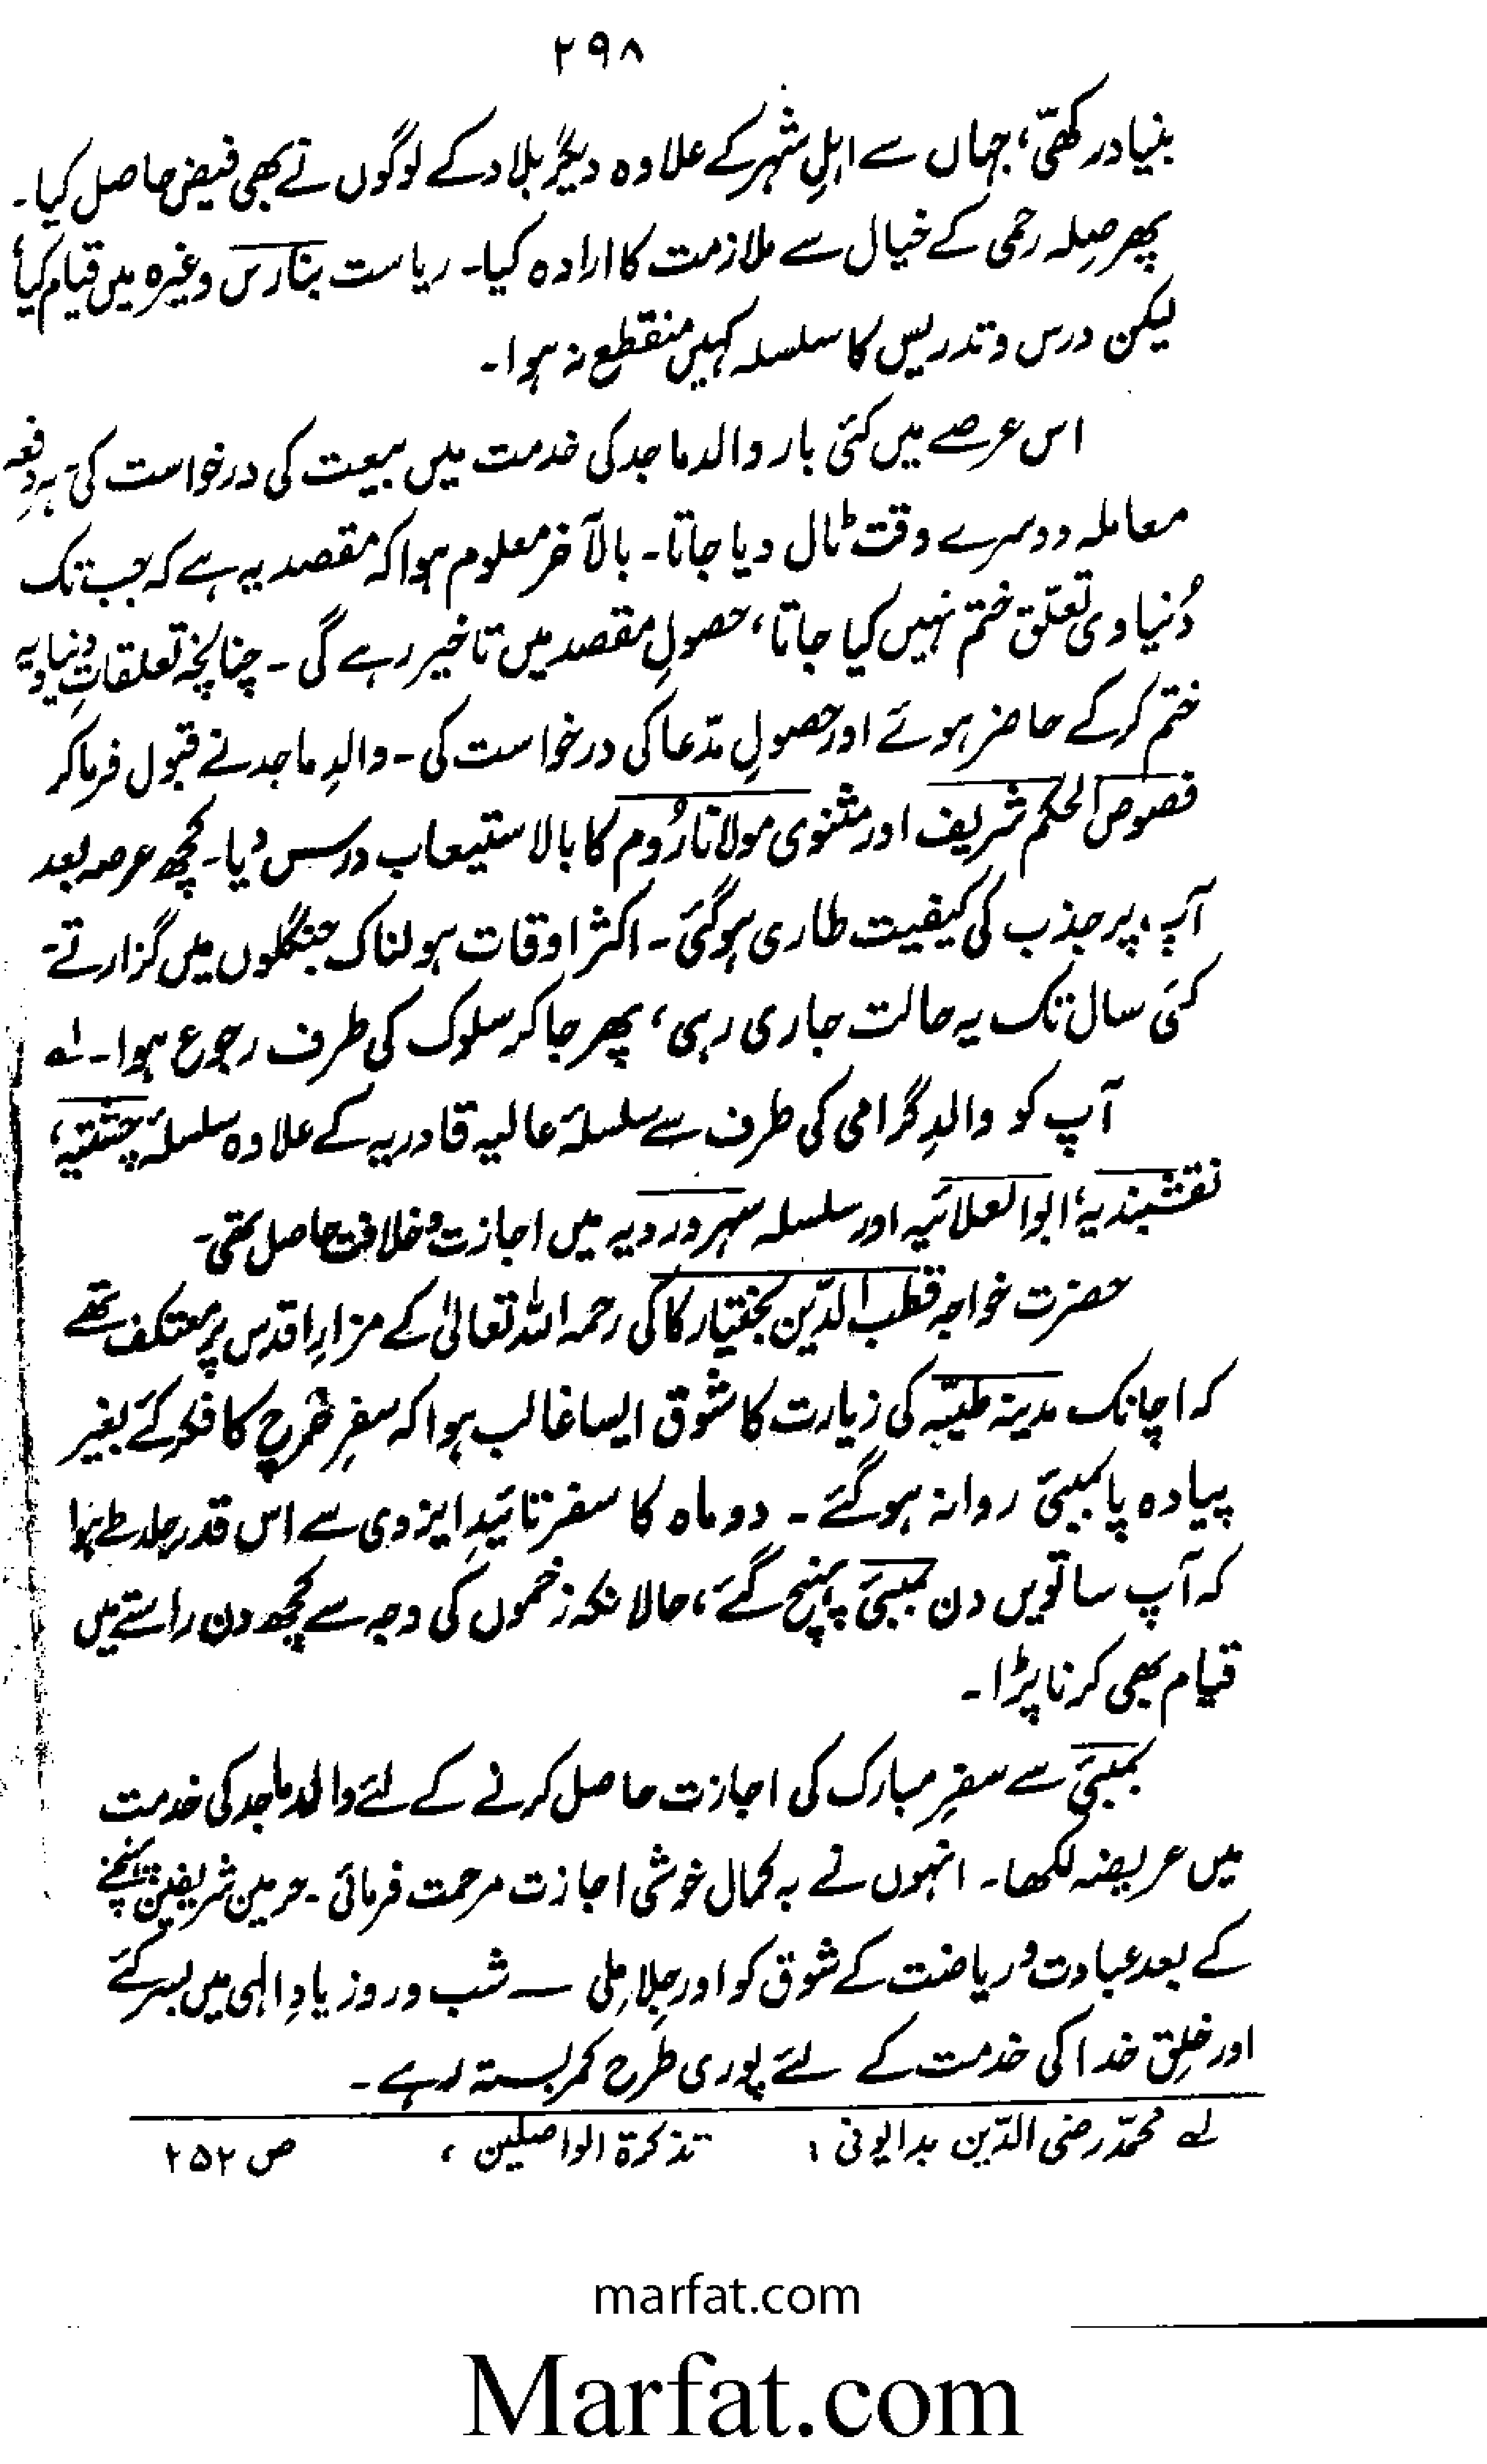 ۲۹۸
بنیاد رکھی، جہاں سے اہلِ شہر کے علاوہ دیگر بلاد کے لوگوں نے بھی فیض حاصل کیا۔
پھر صِلہ رحمی کے خیال سے ملازمت کا ارادہ کیا۔ ریاست بنارس وغیرہ میں قیام کیا،
لیکن درس و تدریس کا سلسلہ کہیں منقطع نہ ہوا۔
اس عرصے میں کئی بار والد ماجد کی خدمت میں بیعت کی درخواست کی، ہر دفعہ
معاملہ دوسرے وقت ٹال دیا جاتا۔ بالآخر معلوم ہوا کہ مقصد یہ ہے کہ جب تک
دُنیاوی تعلّق ختم نہیں کیا جاتا، حصولِ مقصد میں تاخیر رہے گی۔ چنانچہ تعلقاتِ دنیاویہ
ختم کر کے حاضر ہوئے اور حصولِ مدّعا کی درخواست کی۔ والدِ ماجد نے قبول فرما کر
فصوص الحکم شریف اور مثنوی مولانا رُوم کا بالاستیعاب درس دیا۔ کچھ عرصہ بعد
آپ پر جذب کی کیفیت طاری ہو گئی۔ اکثر اوقات ہولناک جنگلوں میں گزارتے،
کئی سال تک یہ حالت جاری رہی، پھر جا کر سلوک کی طرف رجوع ہوا۔ لہ
آپ کو والدِ گرامی کی طرف سے سلسلۂ عالیہ قادریہ کے علاوہ سلسلۂ چشتیہ،
نقشبندیہ، ابوالعلائیہ اور سلسلہ سہروردیہ میں اجازت و خلافت حاصل تھی۔
حضرت خواجہ قطب الدّین بختیار کاکی رحمہ اللہ تعالیٰ کے مزارِ اقدس پر معتکف تھے
کہ اچانک مدینہ طیبّہ کی زیارت کا شوق ایسا غالب ہوا کہ سفرِ خرچ کا فکر کئے بغیر
پیادہ پا بمبئی روانہ ہو گئے۔ دو ماہ کا سفر تائیدِ ایزدی سے اس قدر جلد طے ہوا
کہ آپ ساتویں دن بمبئی پہنچ گئے، حالانکہ زخموں کی وجہ سے کچھ دن راستے میں
قیام بھی کرنا پڑا۔
بمبئی سے سفرِ مبارک کی اجازت حاصل کرنے کے لئے والد ماجد کی خدمت
میں عریضہ لکھا۔ انہوں نے بہ کمال خوشی اجازت مرحمت فرمائی۔ حرمین شریفین پہنچنے
کے بعد عبادت و ریاضت کے شوق کو اور جِلا مِلی — شب و روز یادِ الٰہی میں بسر کئے
اور خلقِ خدا کی خدمت کے لئے پوری طرح کمر بستہ رہے۔
لے محمّد رضی الدّین بدایونی، تذکرۃ الواصلین، ص ۲۵۲
marfat.com
Marfat.com